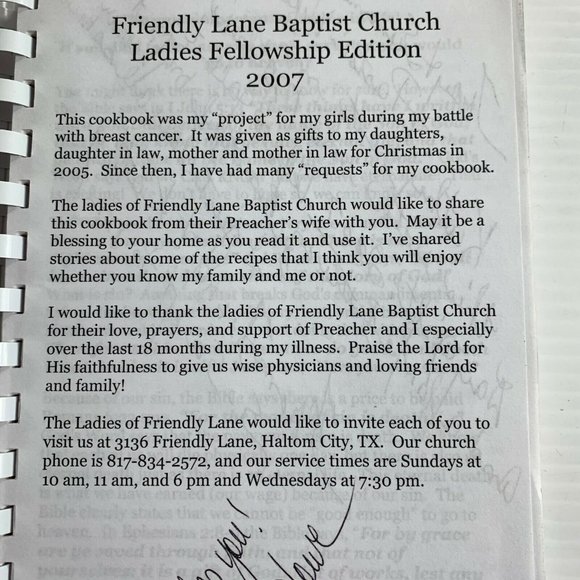 Friendly Lane Baptist Church
Ladies Fellowship Edition
2007
This cookbook was my “project” for my girls during my battle
with breast cancer.  It was given as gifts to my daughters,
daughter in law, mother and mother in law for Christmas in
2005.  Since then, I have had many “requests” for my cookbook.
The ladies of Friendly Lane Baptist Church would like to share
this cookbook from their Preacher’s wife with you.  May it be a
blessing to your home as you read it and use it.  I’ve shared
stories about some of the recipes that I think you will enjoy
whether you know my family and me or not.
I would like to thank the ladies of Friendly Lane Baptist Church
for their love, prayers, and support of Preacher and I especially
over the last 18 months during my illness.  Praise the Lord for
His faithfulness to give us wise physicians and loving friends
and family!
The Ladies of Friendly Lane would like to invite each of you to
visit us at 3136 Friendly Lane, Haltom City, TX.  Our church
phone is 817-834-2572, and our service times are Sundays at
10 am, 11 am, and 6 pm and Wednesdays at 7:30 pm.
you!